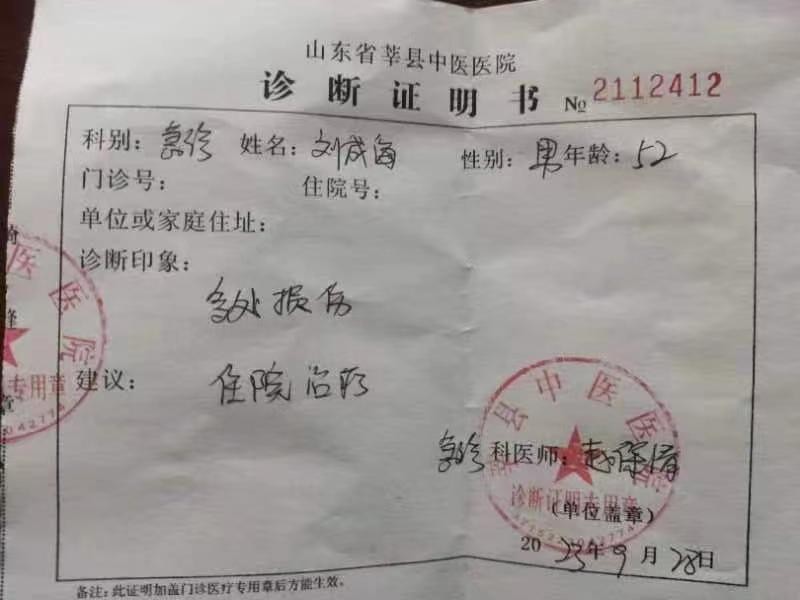 山东省莘县中医医院
诊断证明书 № 2112412
科别：急诊 姓名：刘成海 性别：男 年龄：52
门诊号： 住院号：
单位或家庭住址：
诊断印象：
多处损伤
建议： 住院治疗
急诊科医师：
（单位盖章）
2023年9月28日
备注：此证明加盖门诊医疗专用章后方能生效。
莘县中医医院
诊断证明专用章
医医院
专用章
042774